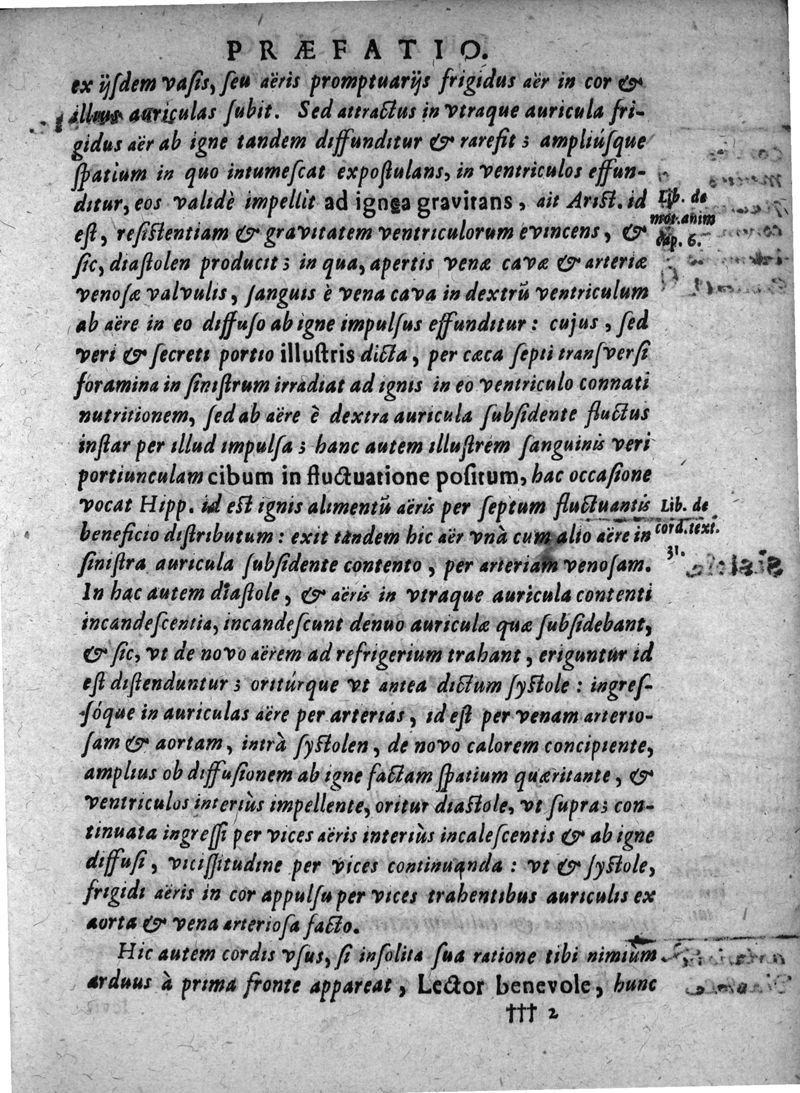 PRÆFATIO.
ex ijſdem vaſis, ſeu aëris promptuarijs frigidus aër in cor &
illius auriculas ſubit. Sed attractus in vtraque auricula fri-
gidus aër ab igne tandem diffunditur & rarefit ; ampliúſque
ſpatium in quo intumeſcat expoſtulans, in ventriculos effun-
ditur, eos validè impellit ad ignea gravitans, ait Ariſt. id
Lib. de
eſt, reſiſtentiam & gravitatem ventriculorum evincens, &
mot. anim
ſic, diaſtolen producit ; in qua, apertis venæ cavæ & arteriæ
cap. 6.
venoſæ valvulis, ſanguis è vena cava in dextrũ ventriculum
ab aëre in eo diffuſo ab igne impulſus effunditur : cujus, ſed
veri & ſecreti portio illuſtris dicta, per cæca ſepti tranſverſi
foramina in ſiniſtrum irradiat ad ignis in eo ventriculo connati
nutritionem, ſed ab aëre è dextra auricula ſubſidente fluctus
inſtar per illud impulſa ; hanc autem illuſtrem ſanguinis veri
portiunculam cibum in fluctuatione poſitum, hac occaſione
vocat Hipp. id eſt ignis alimentũ aëris per ſeptum fluctuantis
Lib. de
beneficio diſtributum : exit tandem hic aër vnà cum alio aëre in
cord. text.
ſiniſtra auricula ſubſidente contento, per arteriam venoſam.
31.
In hac autem diaſtole, & aëris in vtraque auricula contenti
incandeſcentia, incandeſcunt denuo auriculæ quæ ſubſidebant,
& ſic, vt de novo aërem ad refrigerium trahant, eriguntur id
eſt diſtenduntur ; oritúrque vt antea dictum ſyſtole : ingreſ-
ſóque in auriculas aëre per arterias, id eſt per venam arterio-
ſam & aortam, intrà ſyſtolen, de novo calorem concipiente,
amplius ob diffuſionem ab igne factam ſpatium quæritante, &
ventriculos interiùs impellente, oritur diaſtole, vt ſupra ; con-
tinuata ingreſſi per vices aëris interiùs incaleſcentis & ab igne
diffuſi, viciſſitudine per vices continuanda : vt & ſyſtole,
frigidi aëris in cor appulſu per vices trahentibus auriculis ex
aorta & vena arterioſa facto.
Hic autem cordis vſus, ſi inſolita ſua ratione tibi nimiùm
arduus à prima fronte appareat, Lector benevole, hunc
††† 2